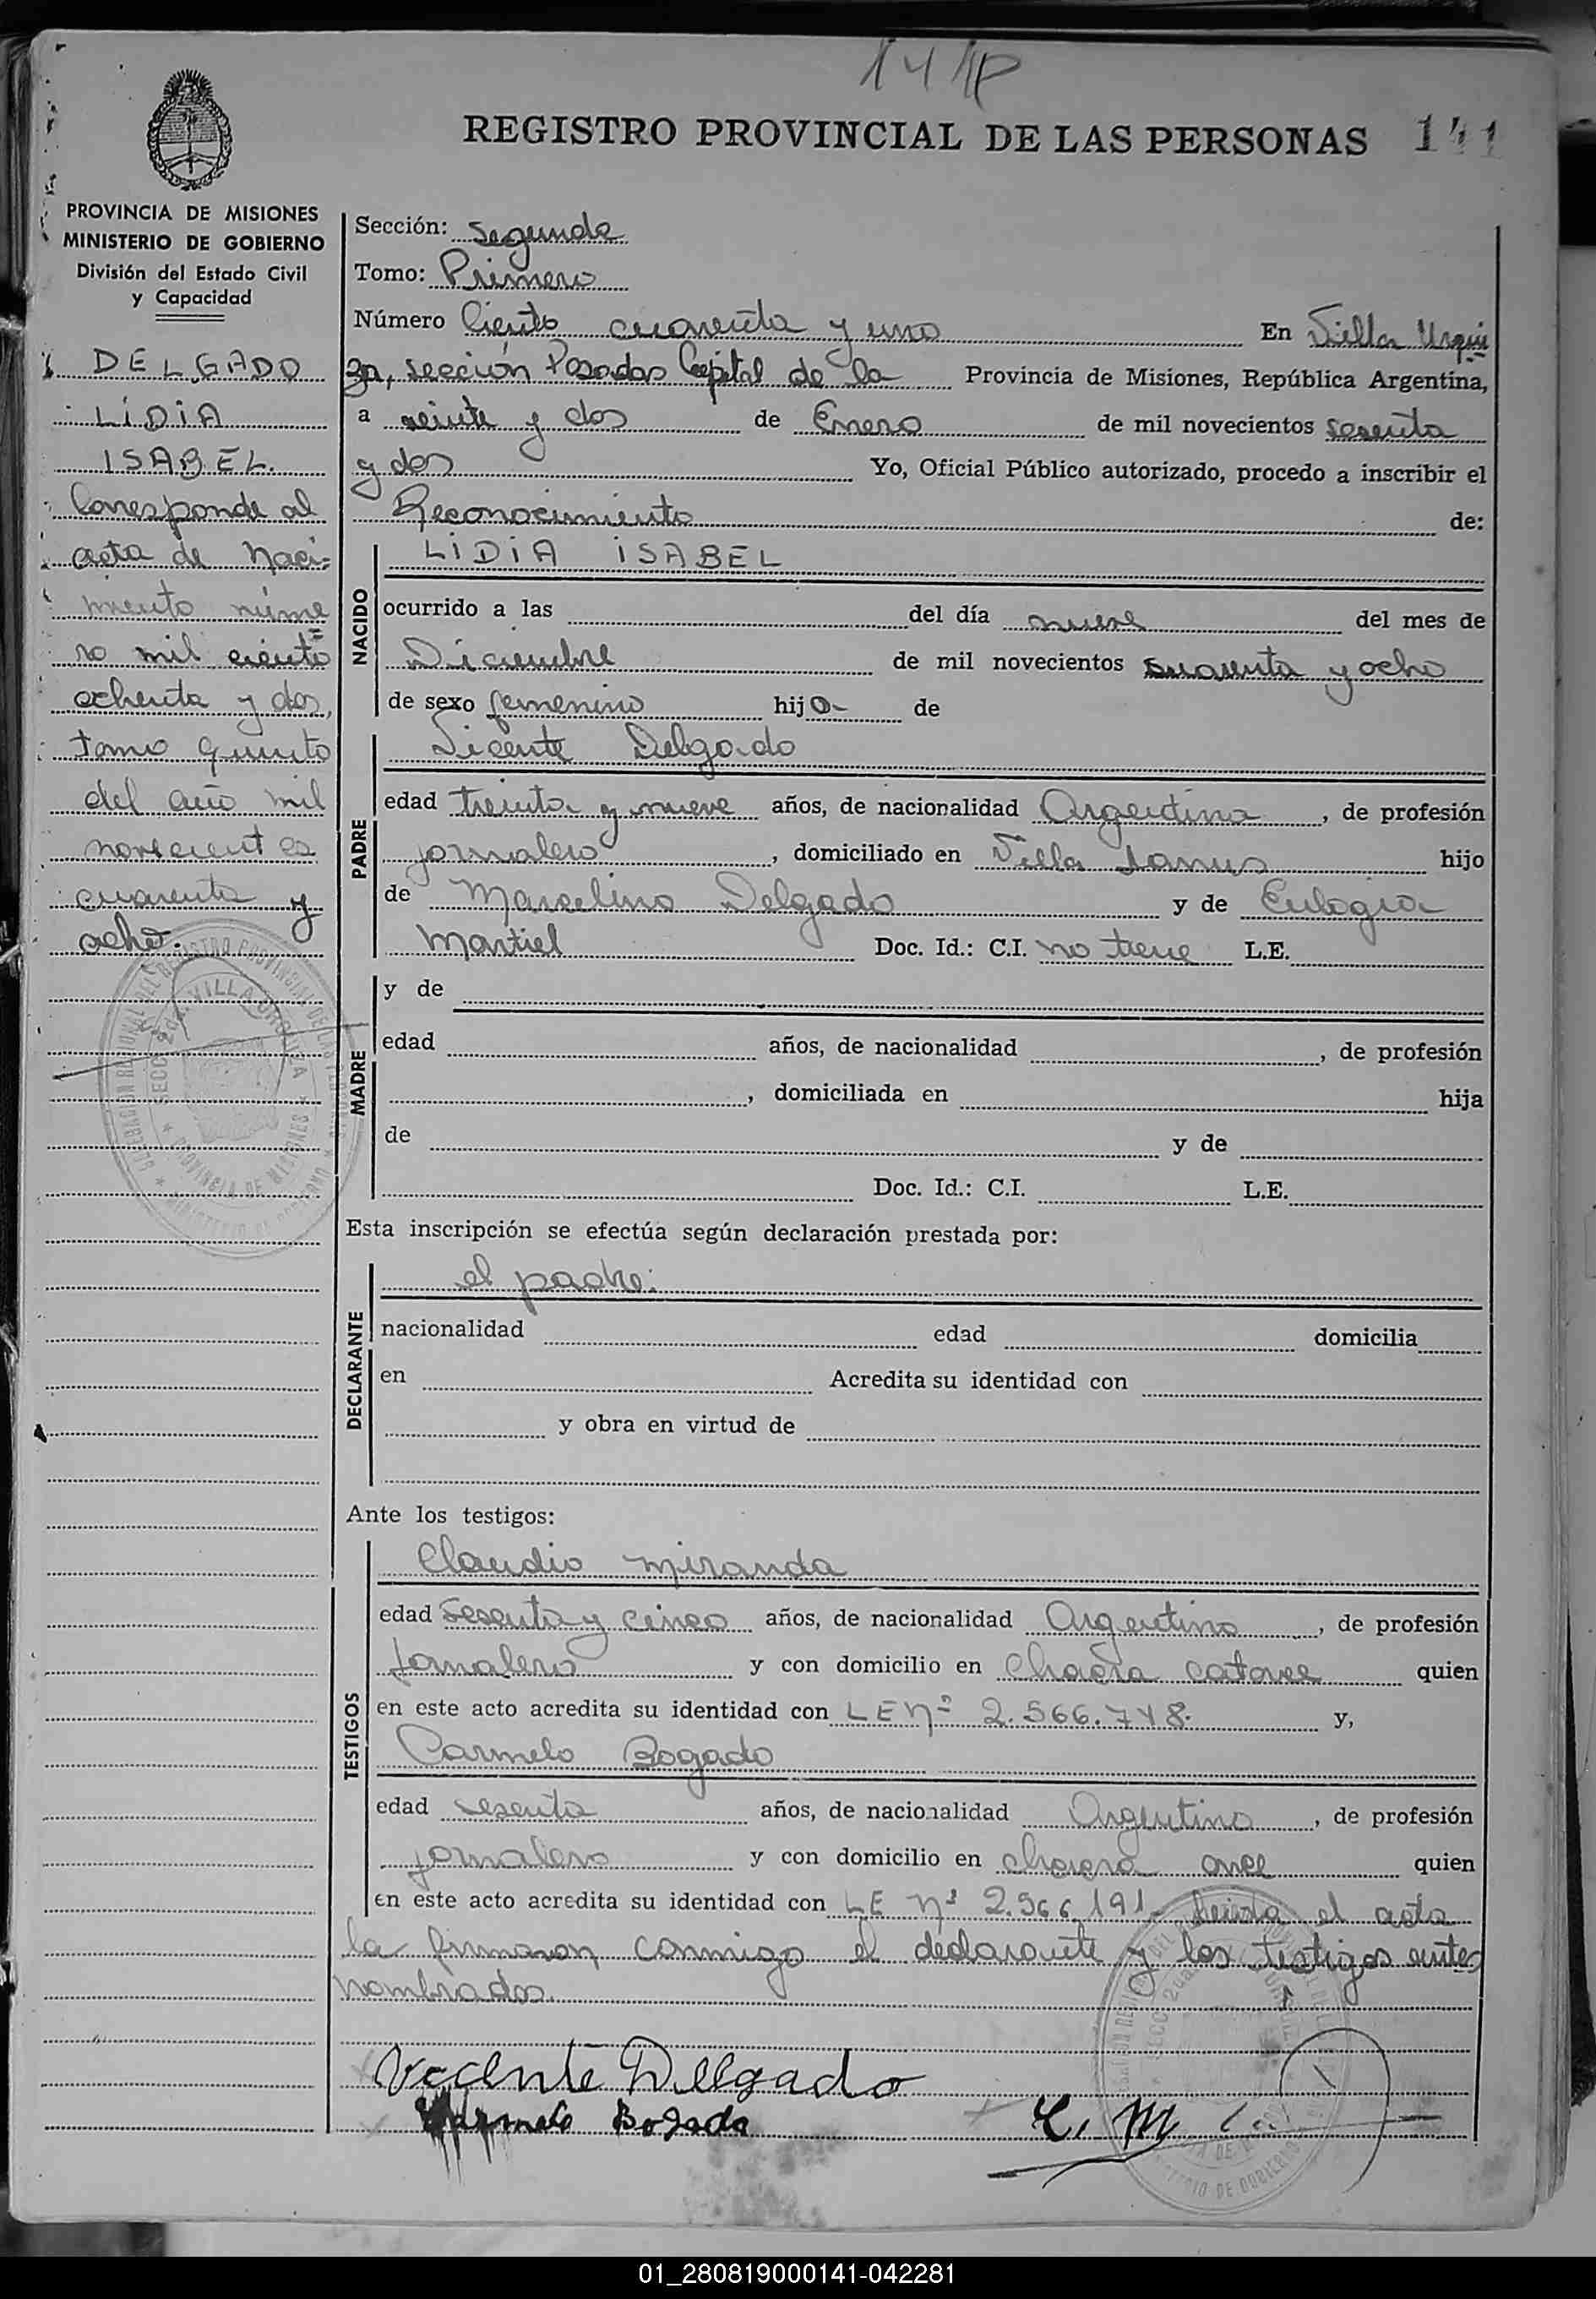 14
REGISTRO PROVINCIAL DE LAS PERSONAS 141
PROVINCIA DE MISIONES
MINISTERIO DE GOBIERNO
División del Estado Civil
y Capacidad
DELGADO
LIDIA
ISABEL.
Corresponde al
acta de Naci-
miento núme
ro mil ciento
ochenta y dos,
tomo quinto
del año mil
novecientos
cuarenta y
ocho.
Sección: Segunda
Tomo: Primero
Número Ciento cuarenta y uno En Villa Urqui
za, sección Posadas Capital de la Provincia de Misiones, República Argentina,
a veinte y dos de Enero de mil novecientos sesenta
y dos Yo, Oficial Público autorizado, procedo a inscribir el
Reconocimiento de:
NACIDO
LIDIA ISABEL
ocurrido a las del día nueve del mes de
Diciembre de mil novecientos cuarenta y ocho
de sexo femenino hija de
PADRE
Vicente Delgado
edad treinta y nueve años, de nacionalidad Argentina, de profesión
jornalero, domiciliado en Villa Lanus hijo
de Marcelino Delgado y de Eulogia
Martiel Doc. Id.: C.I. no tiene L.E.
MADRE
y de
edad años, de nacionalidad , de profesión
, domiciliada en hija
de y de
Doc. Id.: C.I. L.E.
Esta inscripción se efectúa según declaración prestada por:
DECLARANTE
el padre.
nacionalidad edad domicilia
en Acredita su identidad con
y obra en virtud de
Ante los testigos:
TESTIGOS
Claudio Miranda
edad sesenta y cinco años, de nacionalidad Argentino, de profesión
Jornalero y con domicilio en Chacra catorce quien
en este acto acredita su identidad con LE Nº 2.566.748. y,
Carmelo Bogado
edad sesenta años, de nacionalidad Argentino, de profesión
jornalero y con domicilio en chacra once quien
en este acto acredita su identidad con LE Nº 2.566.191. Leida el acta
la firmaron conmigo el declarante y los testigos antes
nombrados.
Vecente Dellgado
Carmelo Bogado C. M
01_280819000141-042281